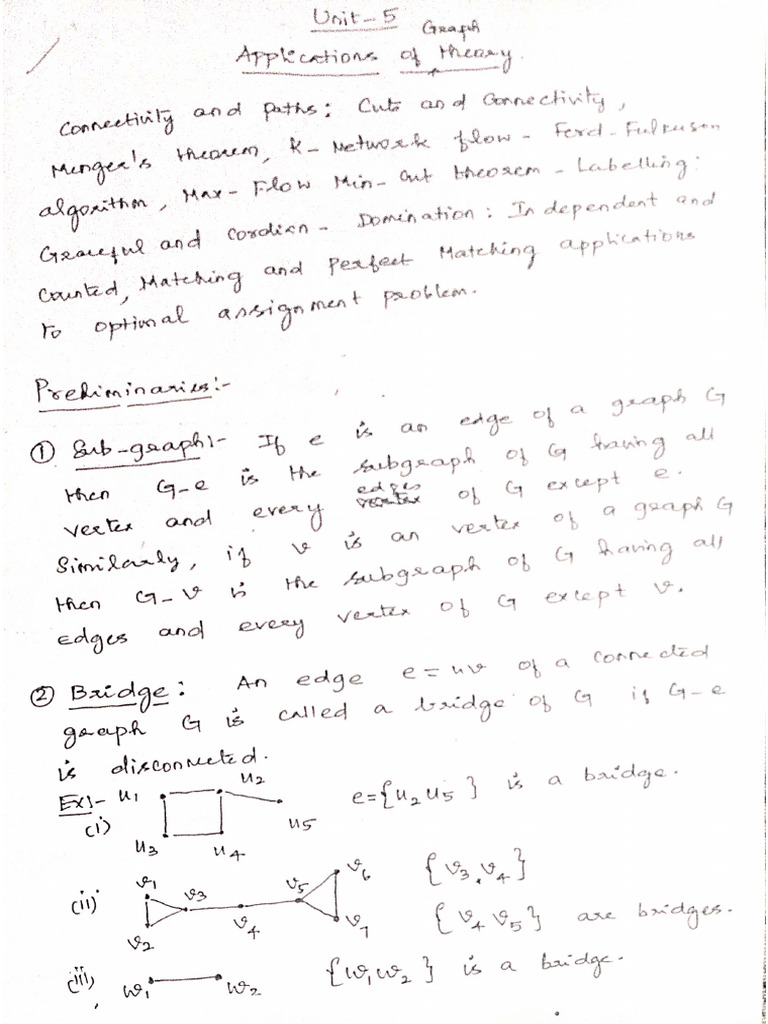 Unit-5
Applications of Graph theory.
Connectivity and paths: Cuts and Connectivity,
Menger's theorem, K-Network flow - Ford-Fulkuson
algorithm, Max-Flow Min-Cut theorem - Labelling:
Graceful and Cordian - Domination: Independent and
Counted, Matching and Perfect Matching applications
to optimal assignment problem.
Preliminaries:-
① Sub-graph:- If e is an edge of a graph G
then G-e is the subgraph of G having all
vertex and every edges of G except e.
Similarly, if v is an vertex of a graph G
then G-v is the subgraph of G having all
edges and every vertex of G except v.
② Bridge: An edge e=uv of a connected
graph G is called a bridge of G if G-e
is disconnected.
Ex:- u1 u2
(i) e={u2 u5} is a bridge.
u5
u3 u4
v1 v3 v5 v6 {v3, v4}
(ii) v4 {v4 v5} are bridges.
v2 v7
(iii) w1 w2 {w1 w2} is a bridge.